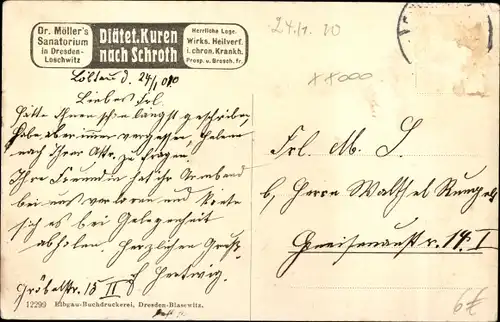 Dr. Möller's
Sanatorium
in Dresden-
Loschwitz
Diätet. Kuren
nach Schroth
Herrliche Lage.
Wirks. Heilverf.
i. chron. Krankh.
Prosp. u. Brosch. fr.
24./1. 10
Löbtau d. 24/1 010
Liebes Frl.
Hätte Ihnen schon längst geschrieben,
habe aber immer vergessen, Helene
nach Ihrer Adr. zu fragen.
Ihre Freundin hat ihr Armband
bei uns verloren und könnte
sich es bei Gelegenheit
abholen. Herzlichen Gruß
Hertwig.
Gröbelstr. 15 II
Frl. M. S.
b. Herrn Walther
Gneisenaustr. 14 I
12299 Elbgau-Buchdruckerei, Dresden-Blasewitz.
6€